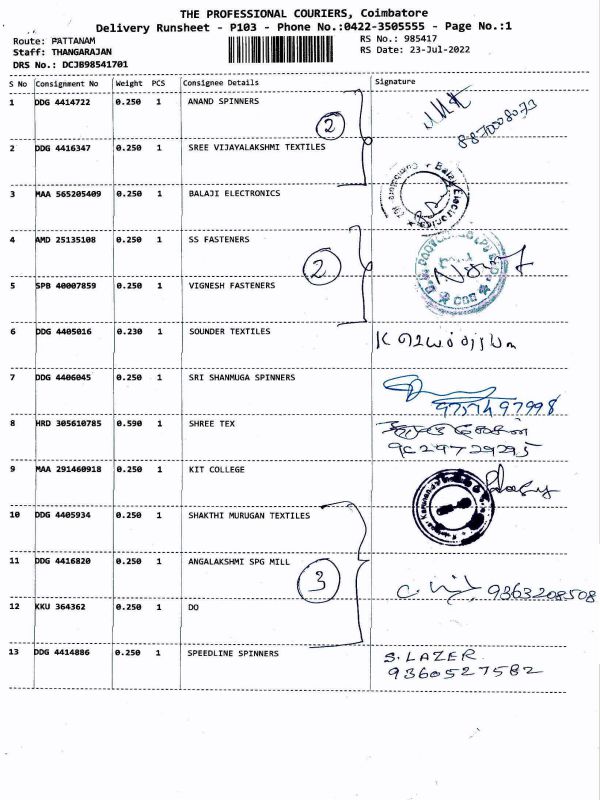 THE PROFESSIONAL COURIERS, Coimbatore
Delivery Runsheet - P103 - Phone No.:0422-3505555 - Page No.:1
Route: PATTANAM
RS No.: 985417
Staff: THANGARAJAN
RS Date: 23-Jul-2022
DRS No.: DCJB98541701
S No Consignment No Weight PCS Consignee Details Signature
1 DDG 4414722 0.250 1 ANAND SPINNERS
2
8870008073
2 DDG 4416347 0.250 1 SREE VIJAYALAKSHMI TEXTILES
3 MAA 565205409 0.250 1 BALAJI ELECTRONICS
4 AMD 25135108 0.250 1 SS FASTENERS
2
5 SPB 40007859 0.250 1 VIGNESH FASTENERS
6 DDG 4405016 0.230 1 SOUNDER TEXTILES
7 DDG 4406045 0.250 1 SRI SHANMUGA SPINNERS
8 HRD 305610785 0.590 1 SHREE TEX
9629729295
9 MAA 291460918 0.250 1 KIT COLLEGE
10 DDG 4405934 0.250 1 SHAKTHI MURUGAN TEXTILES
11 DDG 4416820 0.250 1 ANGALAKSHMI SPG MILL
3
9363208508
12 KKU 364362 0.250 1 DO
13 DDG 4414886 0.250 1 SPEEDLINE SPINNERS
S. LAZER
9360527582